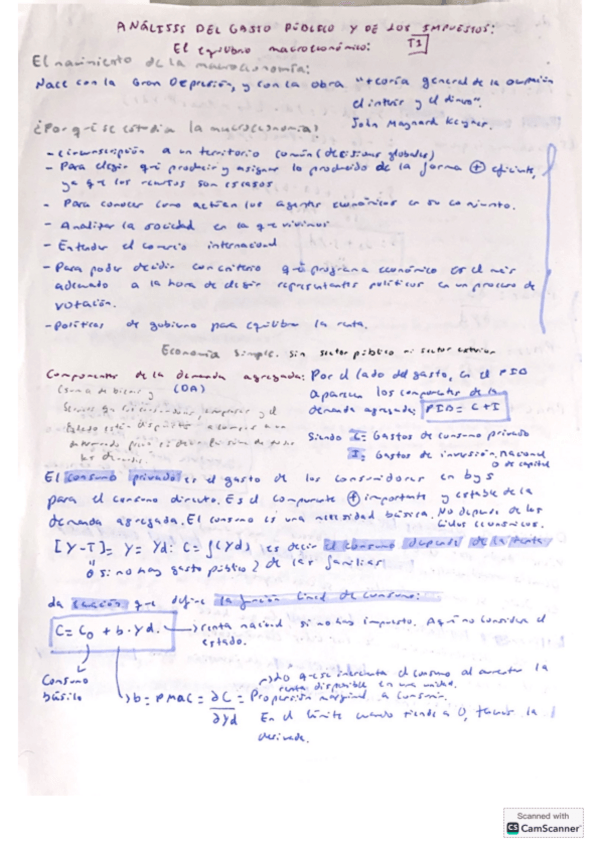 ANÁLISIS DEL GASTO PÚBLICO Y DE LOS IMPUESTOS:
El equilibrio macroeconómico: T1
El nacimiento de la macroeconomía:
Nace con la Gran Depresión, y con la obra "teoría general de la ocupación
el interés y el dinero".
John Maynard Keynes.
¿Por qué se estudia la macroeconomía?
- circunscripción a un territorio común (decisiones globales)
- Para elegir qué producir y asignar lo producido de la forma + eficiente,
ya que los recursos son escasos
- Para conocer como actúan los agentes económicos en su conjunto.
- Analizar la sociedad en la que vivimos
- Entender el comercio internacional
- Para poder decidir con criterio qué programa económico es el más
adecuado a la hora de elegir representantes políticos en un proceso de
votación.
- Políticas de gobierno para equilibrar la renta.
Economía simple. Sin sector público ni sector exterior
Componentes de la demanda agregada: Por el lado del gasto, en el PIB
(DA) aparecen los componentes de la
(suma de bienes y
demanda agregada: PIB = C + I
Siendo C: Gastos de consumo privado
I: Gastos de inversión nacional
o de capital
El consumo privado es el gasto de los consumidores en bys
para el consumo directo. Es el componente + importante y estable de la
demanda agregada. El consumo es una necesidad básica. No depende de los
ciclos económicos.
[Y-T] = Y = Yd: C = f(Yd) es decir el consumo depende de la renta
si no hay gasto público de las familias
La ecuación que define la función lineal de consumo:
C = C0 + b · Yd. → renta nacional si no hay impuesto. Aquí no considera el
estado.
Consumo
básico
lo que se incrementa el consumo al aumentar la
renta disponible en una unidad.
b = PMAC = ∂C/∂Yd = Propensión marginal a consumir.
En el límite cuando tiende a 0, tenemos la
derivada.
Scanned with
CS CamScanner